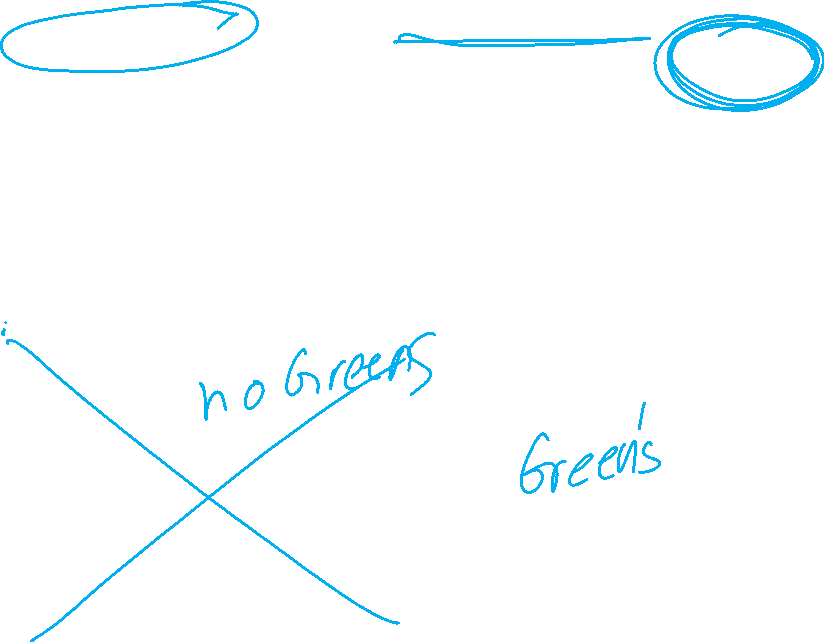 no Greens
Green's